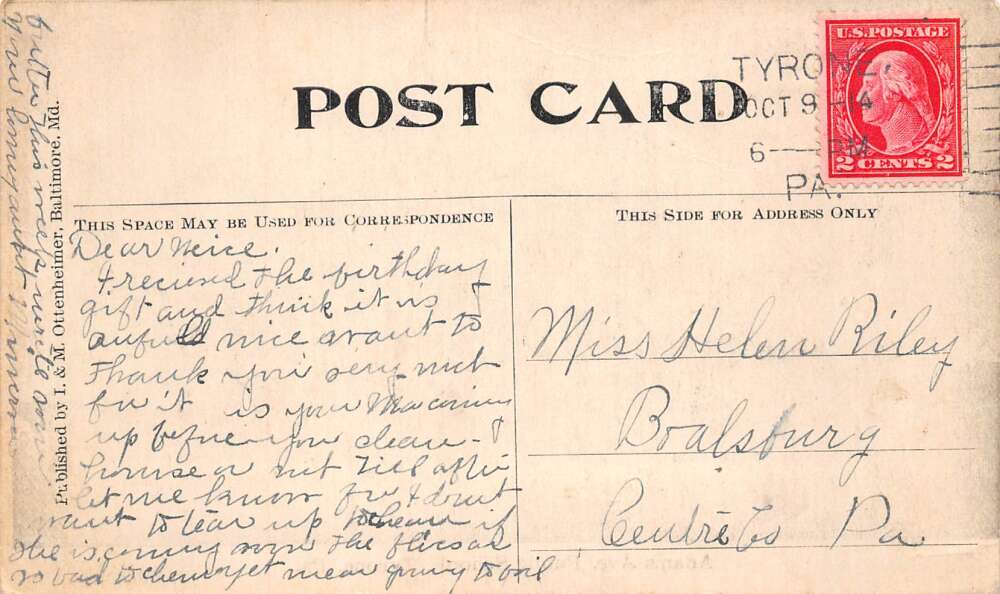 POST CARD
TYRONE,
OCT 9 - 14
6 — PM
PA.
U.S. POSTAGE
2 CENTS 2
THIS SPACE MAY BE USED FOR CORRESPONDENCE
THIS SIDE FOR ADDRESS ONLY
Published by I. & M. Ottenheimer, Baltimore, Md.
Dear Neice.
I recieved the birthday
gift and think it is
nice want to
thank you very
for it is your Ma coming
up before you clean
house or not till after
let me know for I dont
want to tear up to clean if
she is coming soon the flies are
so bad to clean yet mean going to
this week write soon
your aunt
Miss Helen Riley
Boalsburg
Centre Co Pa